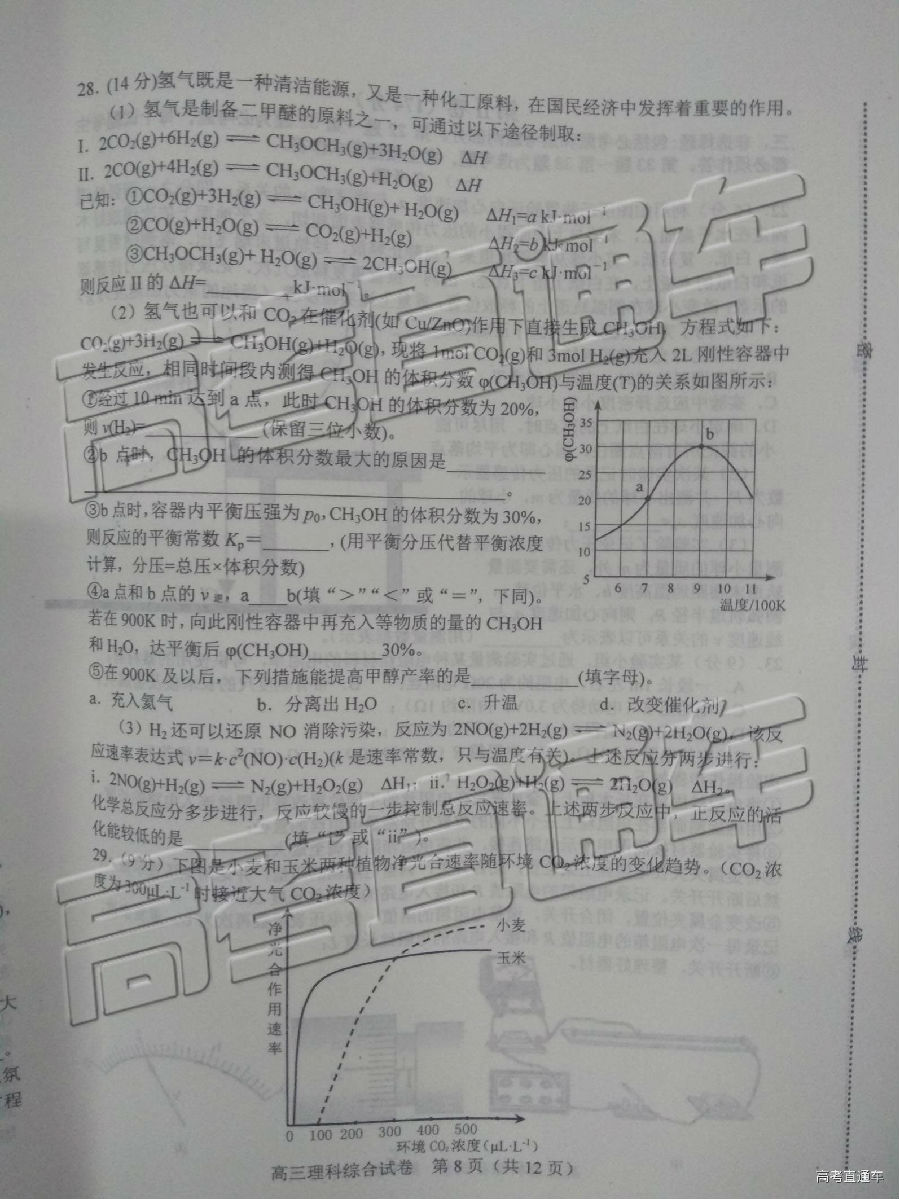 28. (14分)氢气既是一种清洁能源，又是一种化工原料，在国民经济中发挥着重要的作用。
(1) 氢气是制备二甲醚的原料之一，可通过以下途径制取：
I. 2CO₂(g)+6H₂(g)⇌CH₃OCH₃(g)+3H₂O(g) ΔH
II. 2CO(g)+4H₂(g)⇌CH₃OCH₃(g)+H₂O(g) ΔH
已知：①CO₂(g)+3H₂(g)⇌CH₃OH(g)+ H₂O(g) ΔH₁=a kJ·mol⁻¹
②CO(g)+H₂O(g)⇌CO₂(g)+H₂(g) ΔH₂=b kJ·mol⁻¹
③CH₃OCH₃(g)+ H₂O(g)⇌2CH₃OH(g) ΔH₃=c kJ·mol⁻¹
则反应II的ΔH=________kJ·mol⁻¹。
(2) 氢气也可以和CO₂在催化剂(如Cu/ZnO)作用下直接生成CH₃OH，方程式如下：
CO₂(g)+3H₂(g)⇌CH₃OH(g)+H₂O(g)，现将1mol CO₂(g)和3mol H₂(g)充入2L刚性容器中
发生反应，相同时间段内测得CH₃OH的体积分数φ(CH₃OH)与温度(T)的关系如图所示：
①经过10 min达到a点，此时CH₃OH的体积分数为20%，
则v(H₂)=__________(保留三位小数)。
②b点时，CH₃OH的体积分数最大的原因是________
________________________________。
③b点时，容器内平衡压强为p₀，CH₃OH的体积分数为30%，
则反应的平衡常数Kp=________，(用平衡分压代替平衡浓度
计算，分压=总压×体积分数)
④a点和b点的v逆，a____b(填“>”“<”或“=”，下同)。
若在900K时，向此刚性容器中再充入等物质的量的CH₃OH
和H₂O，达平衡后φ(CH₃OH)________30%。
⑤在900K及以后，下列措施能提高甲醇产率的是__________(填字母)。
a. 充入氦气 b. 分离出H₂O c. 升温 d. 改变催化剂
(3) H₂还可以还原NO消除污染，反应为2NO(g)+2H₂(g)⇌N₂(g)+2H₂O(g)，该反
应速率表达式v=k·c²(NO)·c(H₂)(k是速率常数，只与温度有关)，上述反应分两步进行：
i. 2NO(g)+H₂(g)⇌N₂(g)+H₂O₂(g) ΔH₁；ii. H₂O₂(g)+H₂(g)⇌2H₂O(g) ΔH₂。
化学总反应分多步进行，反应较慢的一步控制总反应速率。上述两步反应中，正反应的活
化能较低的是__________(填“i”或“ii”)。
φ(CH₃OH)
35
30
25
20
15
10
5
a
b
6 7 8 9 10 11
温度/100K
29. (9分) 下图是小麦和玉米两种植物净光合速率随环境CO₂浓度的变化趋势。（CO₂浓
度为300μL·L⁻¹时接近大气CO₂浓度）
净光合作用速率
小麦
玉米
0 100 200 300 400 500
环境CO₂浓度(μL·L⁻¹)
高三理科综合试卷 第8页（共12页）
密
封
线
大
氛
程
高考直通车
高考直通车
高考直通车